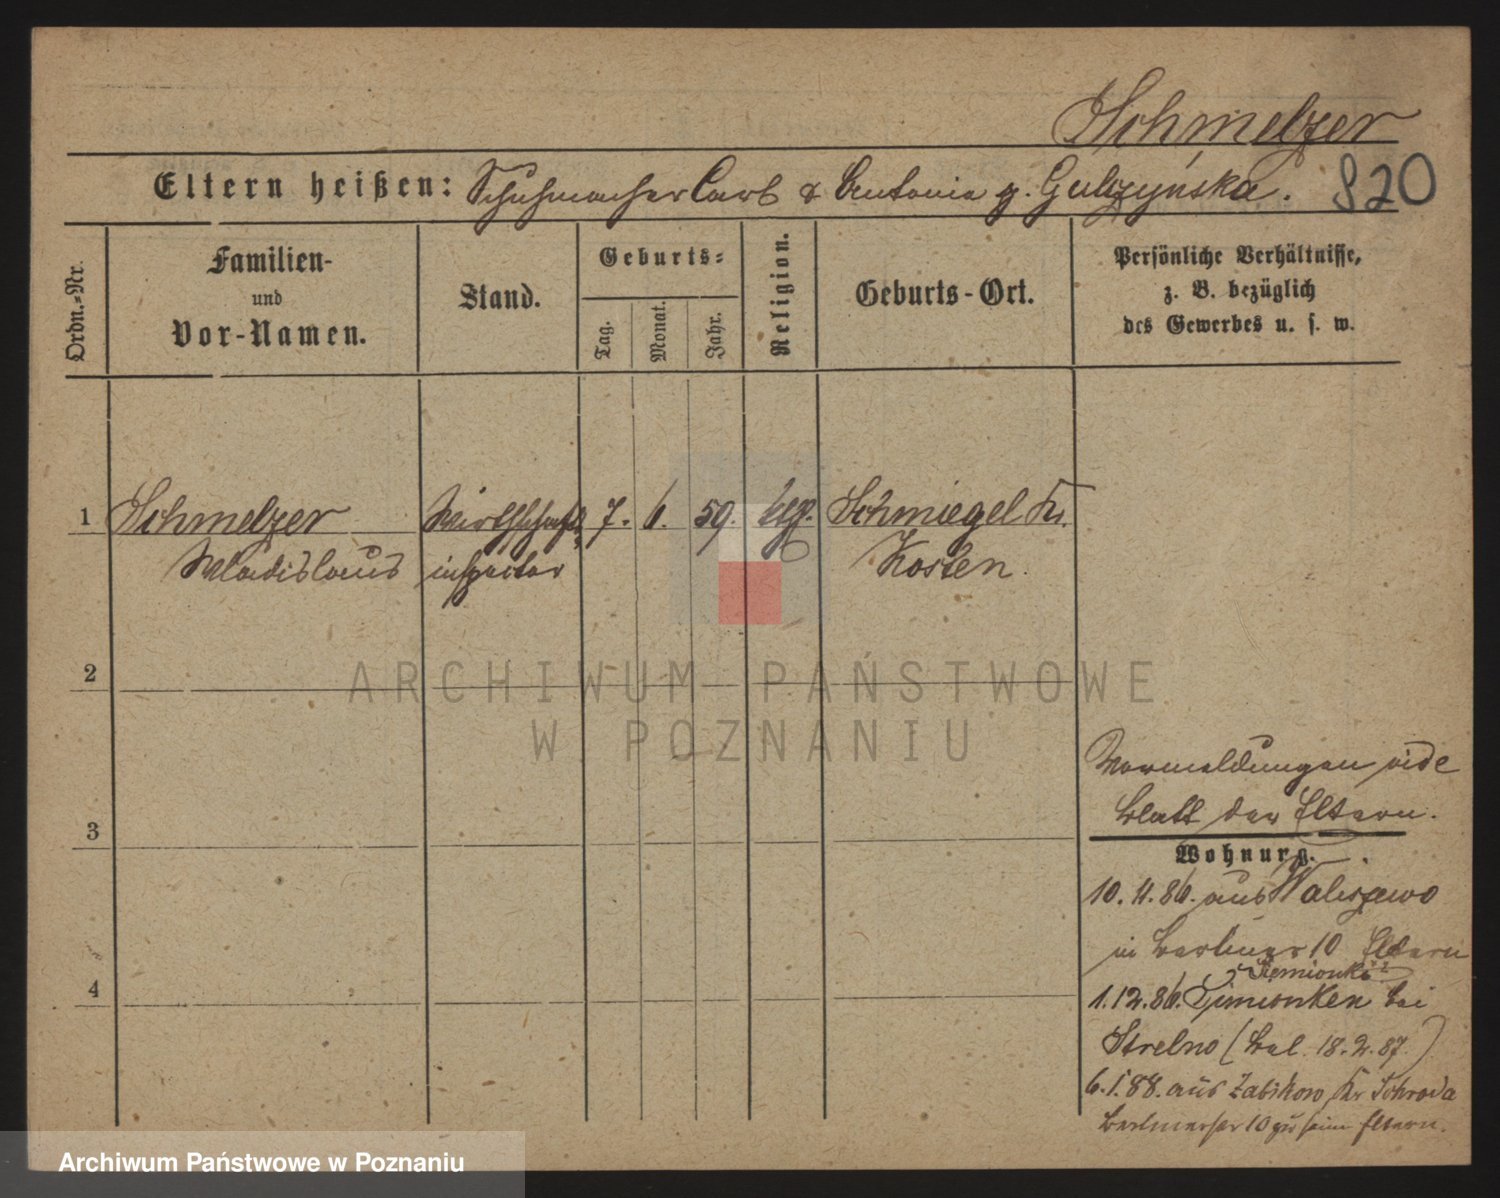 Schmelzer
Eltern heißen: Schuhmacher Carl & Antonie g. Gulczyńska. 820
Ordn.=Nr.
Familien- und Vor-Namen.
Stand.
Geburts=
Tag.
Monat.
Jahr.
Religion.
Geburts-Ort.
Persönliche Verhältnisse,
z. B. bezüglich
des Gewerbes u. s. w.
1 Schmelzer Wirthschafts 7. 6. 59. Schmiegel Kr.
Wladislaus inspector Kosten.
2
3
4
Vormeldungen vide
Blatt der Eltern.
Wohnung.
10. 4. 86. aus
in 10 Eltern
Siemionki
1. 12. 86. Simionken bei
Strelno ( 18. 2. 87. )
6. 1. 88. aus Zabikowo Kr Schroda
10 zu seinen Eltern.
ARCHIWUM PAŃSTWOWE
W POZNANIU
Archiwum Państwowe w Poznaniu